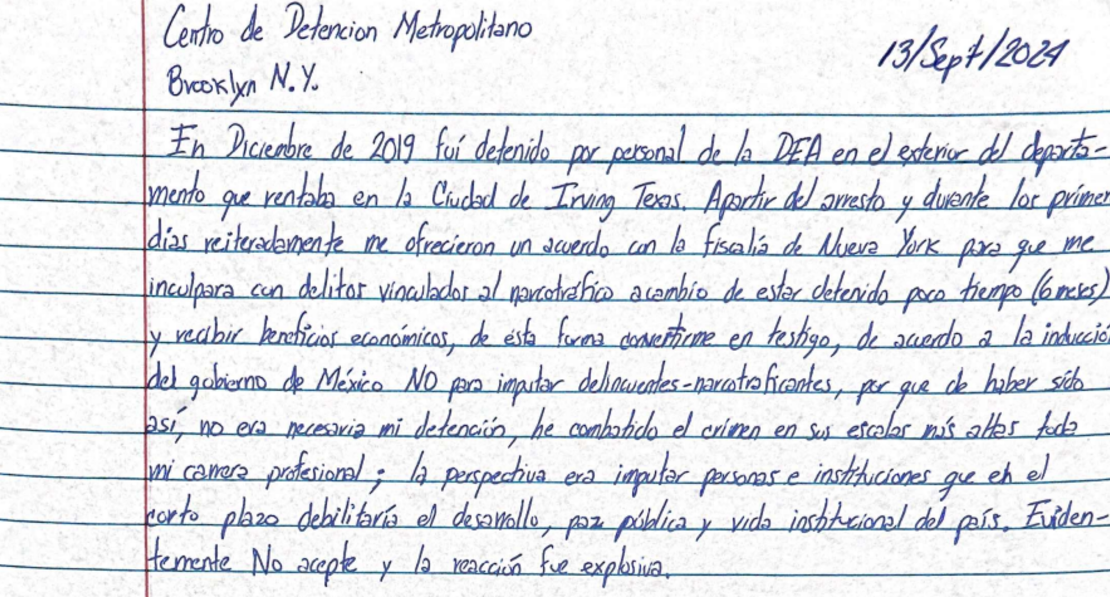 Centro de Detencion Metropolitano
13/Sept/2024
Brooklyn N.Y.
En Diciembre de 2019 fui detenido por personal de la DEA en el exterior del departa-
mento que rentaba en la Ciudad de Irving Texas. Apartir del arresto y durante los primer
dias reiteradamente me ofrecieron un acuerdo con la fiscalía de Nueva York para que me
inculpara con delitos vinculados al narcotráfico acambio de estar detenido poco tiempo (6 meses)
y recibir beneficios económicos, de ésta forma convertirme en testigo, de acuerdo a la inducció
del gobierno de México NO para imputar delincuentes-narcotraficantes, por que de haber sido
así, no era necesaria mi detención, he combatido el crimen en sus escalas más altas toda
mi carrera profesional; la perspectiva era imputar personas e instituciones que en el
corto plazo debilitaría el desarrollo, paz pública y vida institucional del país. Eviden-
temente No acepte y la reacción fue explosiva.